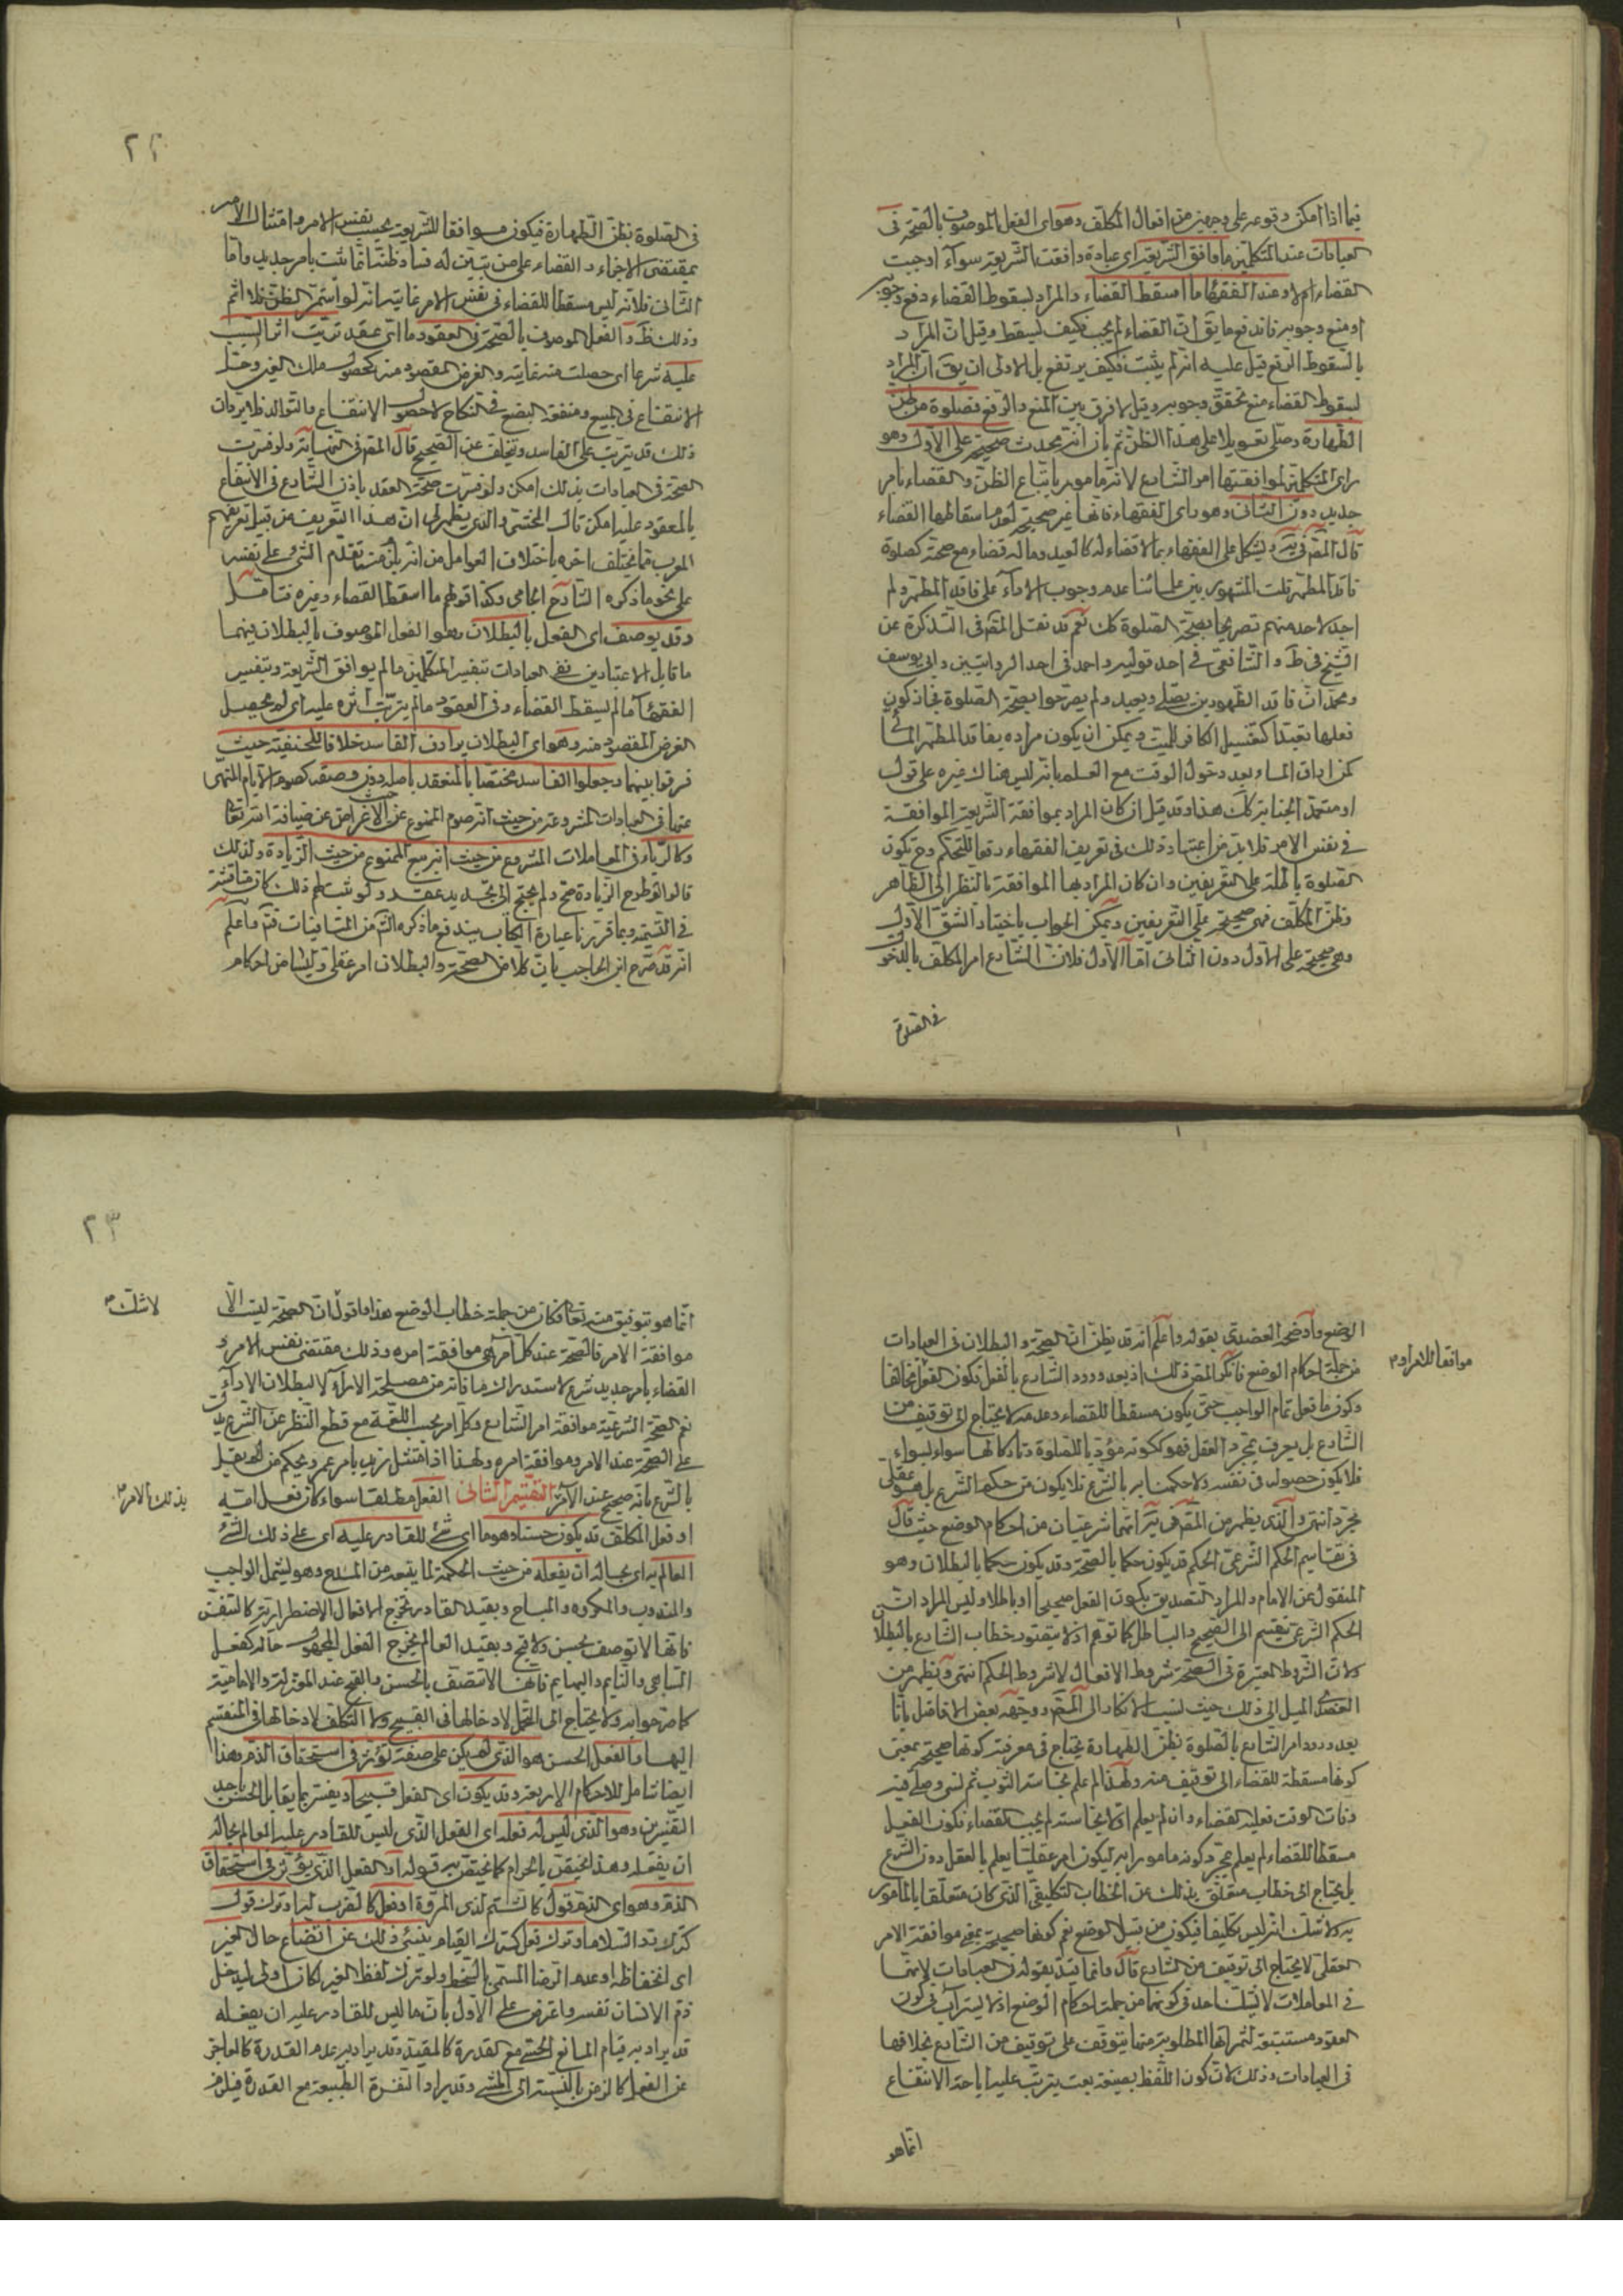 فيما اذا امكن وقوعه على وجهين من افعال المكلف وهو اى الفعل الموصوف بالصحة فى
العبادات عند المتكلمين ما وافق الشريعة اى عبادة وافقت الشريعة سواء اوجبت
القضاء ام لا وعند الفقهاء ما اسقط القضاء والمراد بسقوط القضاء دفع وجوبه
او منع وجوبه فاندفع ما يق ان القضاء لم يجب فكيف يسقط وقيل ان المراد
بالسقوط الرفع قيل عليه انه لم يثبت فكيف يرتفع بل الاولى ان يق ان المراد
بسقوط القضاء منع تحقق وجوبه وقيل لا فرق بين المنع والرفع فصلوة من ظن
الطهارة وصلى تعويلا على هذا الظن ثم بان انه محدث صحيحة على الاول وهو
راى المتكلمين لموافقتها امر الشارع لانه مامور باتباع الظن والقضاء بامر
جديد دون الثانى وهو راى الفقهاء فانها غير صحيحة لعدم اسقاطها القضاء
قال المص فى يشكل على الفقهاء بما لا قضاء له كالعيد وما له قضاء مع صحته كصلوة
فاقد المطهر قلت المشهور بين علمائنا عدم وجوب الاداء على فاقد المطهر ولم
اجد لاحد منهم تصريحا بصحة الصلوة كك نعم قد نقل المص فى التذكرة عن
الشيخ فى ط والشافعى فى احد قوليه واحمد فى احد الروايتين وابى يوسف
ومحمد ان فاقد الطهورين يصلى ويعيد ولم يصرحوا بصحة الصلوة فجاز كون
فعلها تعبدا كتغسيل الكافر للميت ويمكن ان يكون مراده بفاقد المطهر المائى
كمن اراق الماء بعد دخول الوقت مع العلم بانه ليس هناك غيره على قول
او متعمد الجنابة كك هذا وقد قيل ان كان المراد بموافقة الشريعة الموافقة
فى نفس الامر فلا بد من اعتبار ذلك فى تعريف الفقهاء دفعا للتحكم وح تكون
الصلوة باطلة على التعريفين وان كان المراد بها الموافقة بالنظر الى الظاهر
وظن المكلف فهى صحيحة على التعريفين ويمكن الجواب باختيار الشق الاول
وهى صحيحة على الاول دون الثانى اما الاول فلان الشارع امر المكلف بالدخول
فى الصلوة
٢٢
فى الصلوة بظن الطهارة فيكون موافقا للشريعة بحسب نفس الامر وامتثال الامر
يقتضى الاجزاء والقضاء على من تبين له فساد ظنه انما ثبت بامر جديد واما
الثانى فلانه ليس مسقطا للقضاء فى نفس الامر غايته انه لو استمر الظن فلا اثم
وذلك ظ والفعل الموصوف بالصحة فى العقود ما اى عقد ترتب اثر السبب
عليه شرعا اى حصلت منه غايته والغرض المقصود منه كحصول ملك العين وحل
الانتفاع فى البيع ومنفعة البضع فى النكاح لا حصول الانتفاع والتوالد فلا يرد ان
ذلك قد يترتب على الفاسد ويتخلف عن الصحيح قال المص فى النهاية ولو فسرت
الصحة فى العبادات بذلك امكن ولو فسرت صحة العقد باذن الشارع فى الانتفاع
بالمعقود عليه امكن قال المحشى والذى يظهر لى ان هذا التعريف من قبيل تعريفهم
المعرب بما يختلف اخره باختلاف العوامل من انه يلزم منه تقدم الشئ على نفسه
على نحو ما ذكره الشارح الجامى وكذا قولهم ما اسقط القضاء وغيره فتامل
وقد يوصف اى الفعل بالبطلان وهو الفعل الموصوف بالبطلان فيهما
ما قابل الاعتبارين ففى العبادات بتفسير المتكلمين ما لم يوافق الشريعة وبتفسير
الفقهاء ما لم يسقط القضاء وفى العقود ما لم يترتب اثره عليه اى لم يحصل
الغرض المقصود منه وهو اى البطلان يرادف الفاسد خلافا للحنفية حيث
فرقوا بينهما وجعلوا الفاسد مختصا بالمنعقد باصله دون وصفه كصوم الايام المنهى
عنها فى العبادات المشروعة من حيث انه صوم الممنوع عن الاعراض عن ضيافة الله تعالى
وكالربا فى المعاملات المشروع من حيث انه بيع الممنوع من حيث الزيادة ولذلك
قالوا لو طرح الزيادة صح ولم يحتج الى تجديد عقد ولو ثبت لهم ذلك كان مناقشة
فى التسمية وبما قررنا عبارة الكتاب يندفع ما ذكره الش من المنافيات فتم واعلم
انه قد صرح ابن الحاجب بان كلا من الصحة والبطلان امر عقلى وليسا من احكام
الوضع واوضحه العضدى بقوله واعلم انه قد يظن ان الصحة والبطلان فى العبادات
من جملة احكام الوضع فانكر المص ذلك اذ بعد ورود الشارع بالفعل فكون الفعل مخالفا
موافقا للامر او
وكون ما فعل تمام الواجب حتى يكون مسقطا للقضاء وعدمه لا يحتاج الى توقيف من
الشارع بل يعرف بمجرد العقل فهو ككونه مؤديا للصلوة وتاركا لها سواء بسواء
فلا يكون حصوله فى نفسه ولا حكمنا به بالشرع فلا يكون من حكم الشرع بل هو عقلى
مجرد انتهى والذى يظهر من المص فى انهما شرعيتان من احكام الوضع حيث قال
فى تقاسيم الحكم الشرعى الحكم قد يكون حكما بالصحة وقد يكون حكما بالبطلان وهو
المنقول عن الامام والمراد التصديق بكون الفعل صحيحا او باطلا وليس المراد ان
الحكم الشرعى ينقسم الى الصحيح والباطل كما توهم اذ لا يتصور خطاب الشارع بالبطلان
ولان الشروط المعتبرة فى الصحة شروط الافعال لا شروط الحكم انتهى ويظهر من
العضدى الميل الى ذلك حيث نسب الانكار الى المص ووجهه بعض الافاضل بانا
بعد ورود امر الشارع بالصلوة بظن الطهارة يحتاج فى معرفة كونها صحيحة بمعنى
كونها مسقطة للقضاء الى توقيف منه ولهذا لم علم نجاسة الثوب ثم نسى وصلى فيه
وفات الوقت فعليه القضاء وان لم يعلم اولا نجاسته لم يجب القضاء فكون الفعل
مسقطا للقضاء لم يعلم بمجرد كونه مامورا به ليكون امرا عقليا يعلم بالعقل دون الشرع
بل يحتاج الى خطاب متعلق بذلك عن الخطاب التكليفى الذى كان متعلقا بالمأمور
به ولا شك انه ليس تكليفا فيكون من قبيل الوضع نعم كونها صحيحة بمعنى موافقة الامر
العقلى لا يحتاج الى توقيف من الشارع قال وانما قيد بقوله فى العبادات لانهما
فى المعاملات لا يشك احد فى كونهما من جملة احكام الوضع اذ لا يستراب فى كون
العقود مستتبعة لثمراتها المطلوبة منها يتوقف على توقيف من الشارع بخلافها
فى العبادات وذلك لان كون اللفظ بصيغة بعت يترتب عليه اباحة الانتفاع
انما هو
٢٣
انما هو بتوقيف منه تعالى فكان من جملة خطاب الوضع هذا واقول ان الصحة ليست الا
لا شك
موافقة الامر فالصحة عند كل امر هى موافقة امره وذلك مقتضى نفس الامر و
القضاء بامر جديد شرع لاستدراك ما فات من مصلحة الاداء لا لبطلان الاداء
نعم الصحة الشرعية موافقة امر الشارع وكل امر بحسب اللغة مع قطع النظر عن الشرع يدل
على الصحة عند الامر وموافقة امره ولهذا اذا امتثل زيد بامر عمرو يحكم من لم يقل
بالشرع بانه صحيح عند الامر التقسيم الثانى الفعل مطلقا سواء كان فعل الله
بذلك الامر
او فعل المكلف قد يكون حسنا وهو ما اى شئ للقادر عليه اى على ذلك الشئ
العالم به اى بحاله ان يفعله من حيث الحكمة لما يتبعه من المدح وهو يشمل الواجب
والمندوب والمكروه والمباح وبقيد القادر تخرج الافعال الاضطرارية كالتنفس
فانها لا توصف بحسن ولا قبح وبقيد العالم يخرج الفعل المجهول حاله كفعل
الساهى والنايم والبهايم فانها لا تتصف بالحسن والقبح عند المعتزلة والامامية
كما صرحوا به ولا يحتاج الى التحمل لادخالها فى القبيح ولا التكلف لادخالها فى المنقسم
اليهما والفعل الحسن هو الذى لم يكن على صفة تؤثر فى استحقاق الذم وهذا
ايضا شامل للاحكام الاربعة وقد يكون اى الفعل قبيحا ويفسر بما يقابل الحسن باحد
التفسيرين وهو الذى ليس له فعله اى الفعل الذى ليس للقادر عليه العالم بحاله
ان يفعله وهذا يختص بالحرام كما يختص به قوله او الفعل الذى يؤثر فى استحقاق
الذم وهو اى الذم قول كالشتم لذى المروة او فعل كالضرب له او ترك قول
كترك رد السلام او ترك فعل كترك القيام ينبئ ذلك عن اتضاع حال الغير
اى انخفاظه او عدم الرضا المسمى بالسخط ولو ترك لفظ الغير لكان اولى ليدخل
ذم الانسان نفسه واعترض على الاول بان ما ليس للقادر عليه ان يفعله
قد يراد به قيام المانع الحسى مع القدرة كالمقيد وقد يراد به عدم القدرة كالعاجز
عن الفعل كالزمن بالنسبة الى المشى وقد يراد النفرة الطبيعة مع القدرة